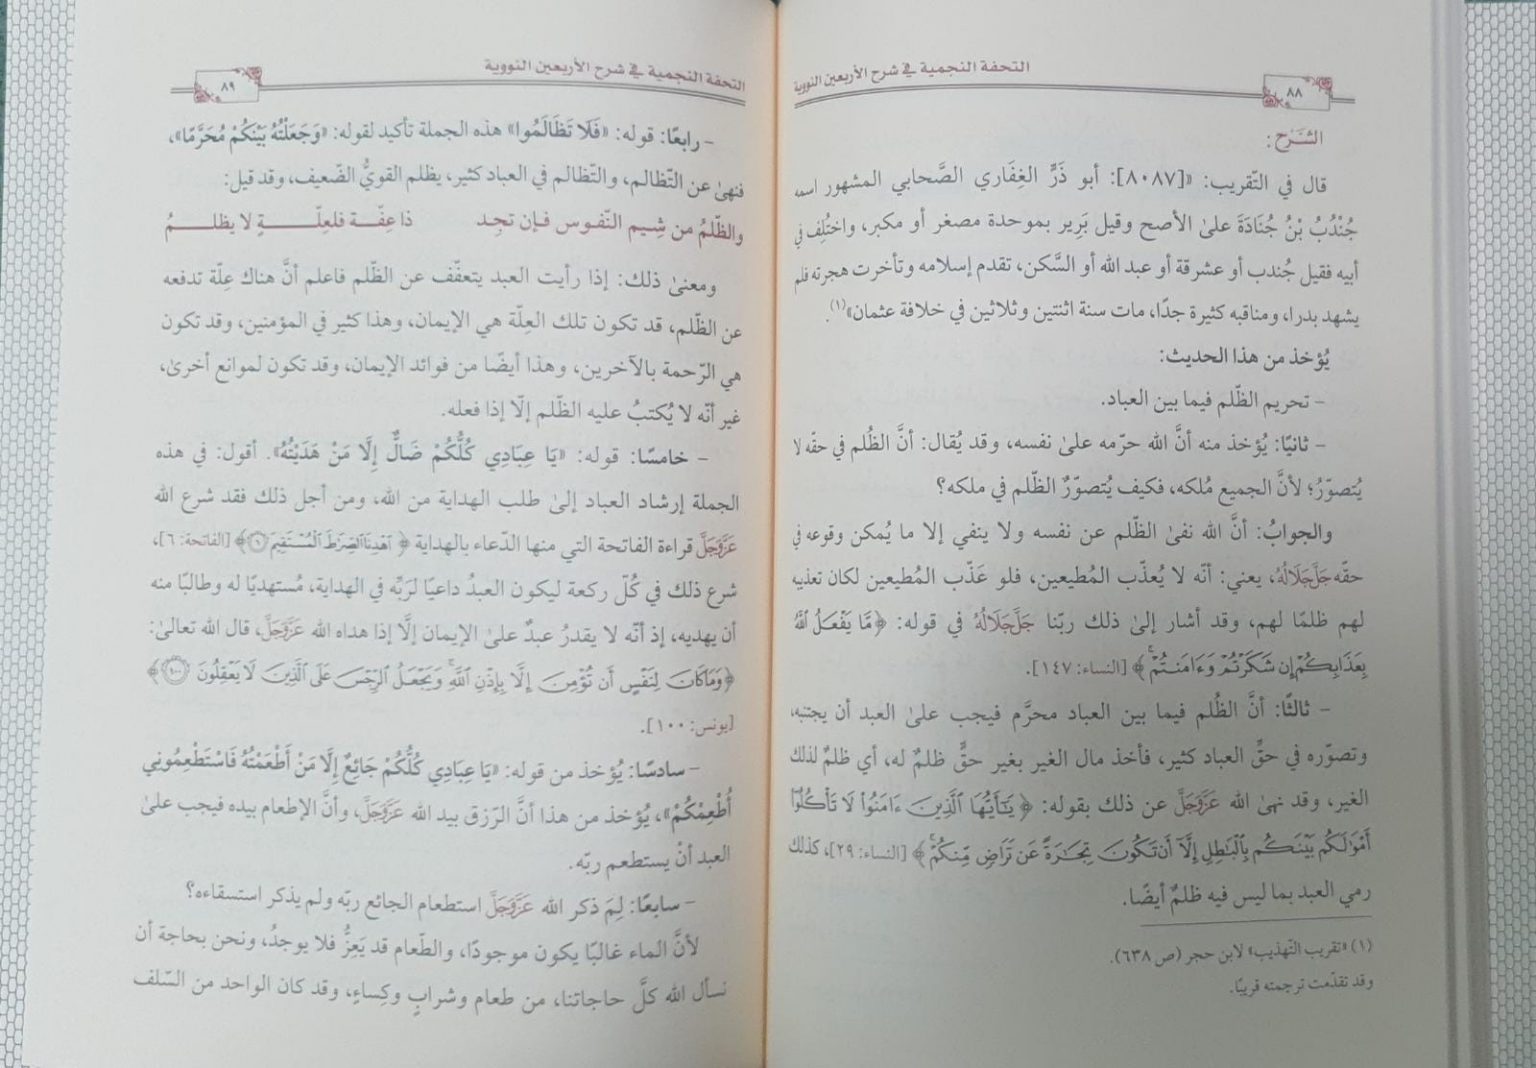 التحفة النجمية في شرح الأربعين النووية
٨٨
الشَّرْح:
قال في التّقريب: «[٨٠٨٧]: أبو ذَرٍّ الغِفَاري الصَّحابي المشهور اسمه
جُنْدُبُ بْنُ جُنَادَةَ علىٰ الأصح وقيل بَرِير بموحدة مصغر أو مكبر، واختُلِف في
أبيه فقيل جُندب أو عشرقة أو عبد الله أو السَّكن، تقدم إسلامه وتأخرت هجرته فلم
يشهد بدرا، ومناقبه كثيرة جدًا، مات سنة اثنتين وثلاثين في خلافة عثمان»(١).
يُؤخذ من هذا الحديث:
- تحريم الظّلم فيما بين العباد.
- ثانيًا: يُؤخذ منه أنَّ الله حرّمه علىٰ نفسه، وقد يُقال: أنَّ الظُلم في حقّه لا
يُتصوّرُ؛ لأنَّ الجميع مُلكه، فكيف يُتصوّرُ الظّلم في ملكه؟
والجوابُ: أنَّ الله نفىٰ الظّلم عن نفسه ولا ينفي إلا ما يُمكن وقوعه في
حقّه جَلَّجَلَالُهُ، يعني: أنّه لا يُعذّب المُطيعين، فلو عَذّب المُطيعين لكان تعذيبه
لهم ظلمًا لهم، وقد أشار إلىٰ ذلك ربّنا جَلَّجَلَالُهُ في قوله: ﴿مَّا يَفْعَلُ ٱللَّهُ
بِعَذَابِكُمْ إِن شَكَرْتُمْ وَءَامَنتُمْ﴾ [النساء: ١٤٧].
- ثالثًا: أنَّ الظُلم فيما بين العباد محرَّم فيجب علىٰ العبد أن يجتنبه،
وتصوّره في حقِّ العباد كثير، فأخذ مال الغير بغير حقٍّ ظلمٌ له، أي ظلمٌ لذلك
الغير، وقد نهىٰ الله عَزَّوَجَلَّ عن ذلك بقوله: ﴿يَٰٓأَيُّهَا ٱلَّذِينَ ءَامَنُوا۟ لَا تَأْكُلُوٓا۟
أَمْوَٰلَكُم بَيْنَكُم بِٱلْبَٰطِلِ إِلَّآ أَن تَكُونَ تِجَٰرَةً عَن تَرَاضٍ مِّنكُمْ﴾ [النساء: ٢٩]، كذلك
رمي العبد بما ليس فيه ظلمٌ أيضًا.
(١) «تقريب التّهذيب» لابن حجر (ص ٦٣٨).
وقد تقدّمت ترجمته قريبًا.
التحفة النجمية في شرح الأربعين النووية
٨٩
- رابعًا: قوله: «فَلَا تَظَالَمُوا» هذه الجملة تأكيد لقوله: «وَجَعَلْتُهُ بَيْنَكُمْ مُحَرَّمًا»،
فنهىٰ عن التّظالم، والتّظالم في العباد كثير، يظلم القويُّ الضّعيف، وقد قيل:
والظّلمُ من شِيم النّفوس فإن تجِد ذا عِفّة فلعِلّةٍ لا يظلمُ
ومعنىٰ ذلك: إذا رأيت العبد يتعفّف عن الظّلم فاعلم أنَّ هناك عِلّة تدفعه
عن الظّلم، قد تكون تلك العِلّة هي الإيمان، وهذا كثير في المؤمنين، وقد تكون
هي الرّحمة بالآخرين، وهذا أيضًا من فوائد الإيمان، وقد تكون لموانع أخرىٰ،
غير أنّه لا يُكتبُ عليه الظّلم إلّا إذا فعله.
- خامسًا: قوله: «يَا عِبَادِي كُلُّكُمْ ضَالٌّ إِلَّا مَنْ هَدَيْتُهُ». أقول: في هذه
الجملة إرشاد العباد إلىٰ طلب الهداية من الله، ومن أجل ذلك فقد شرع الله
عَزَّوَجَلَّ قراءة الفاتحة التي منها الدّعاء بالهداية ﴿ٱهْدِنَا ٱلصِّرَٰطَ ٱلْمُسْتَقِيمَ ۝٦﴾ [الفاتحة: ٦]،
شرع ذلك في كُلّ ركعة ليكون العبدُ داعيًا لرَبِّه في الهداية، مُستهديًا له وطالبًا منه
أن يهديه، إذ أنّه لا يقدرُ عبدٌ علىٰ الإيمان إلَّا إذا هداه الله عَزَّوَجَلَّ، قال الله تعالىٰ:
﴿وَمَا كَانَ لِنَفْسٍ أَن تُؤْمِنَ إِلَّا بِإِذْنِ ٱللَّهِ ۚ وَيَجْعَلُ ٱلرِّجْسَ عَلَى ٱلَّذِينَ لَا يَعْقِلُونَ ۝١٠٠﴾
[يونس: ١٠٠].
- سادسًا: يُؤخذ من قوله: «يَا عِبَادِي كُلُّكُمْ جَائِعٌ إِلَّا مَنْ أَطْعَمْتُهُ فَاسْتَطْعِمُونِي
أُطْعِمْكُمْ»، يُؤخذ من هذا أنَّ الرّزق بيد الله عَزَّوَجَلَّ، وأنَّ الإطعام بيده فيجب علىٰ
العبد أنْ يستطعم ربّه.
- سابعًا: لِمَ ذكر الله عَزَّوَجَلَّ استطعام الجائع ربّه ولم يذكر استسقاءه؟
لأنَّ الماء غالبًا يكون موجودًا، والطّعام قد يَعِزُّ فلا يوجدُ، ونحن بحاجة أن
نسأل الله كلَّ حاجاتنا، من طعام وشرابٍ وكِساءٍ، وقد كان الواحد من السّلف